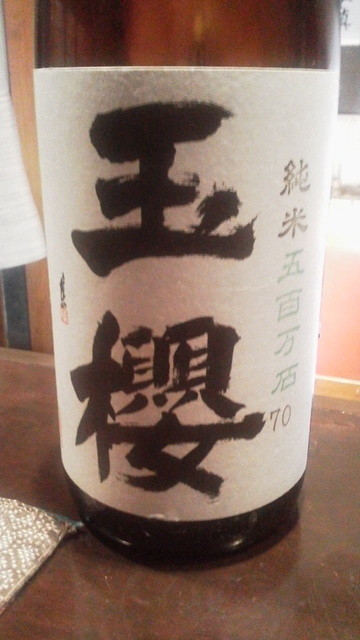 純米五百万石70
玉櫻